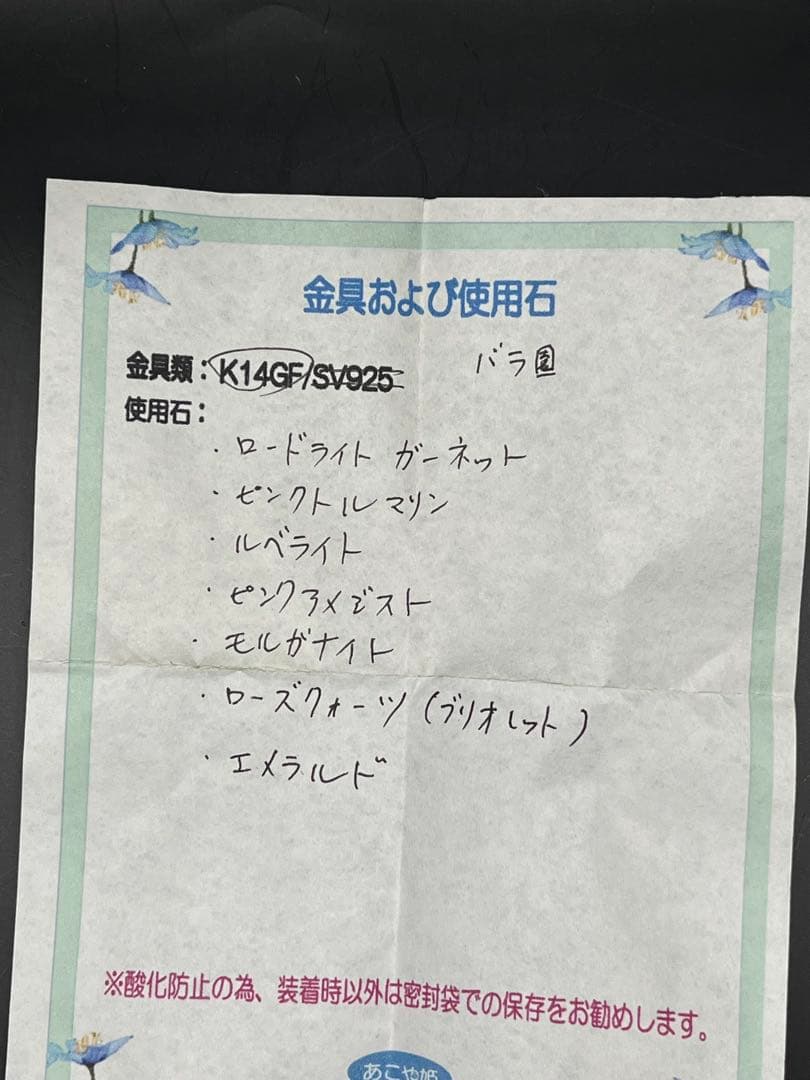 金具および使用石
金具類：K14GF/SV925 バラ園
使用石：
・ロードライト ガーネット
・ピンクトルマリン
・ルベライト
・ピンクアメジスト
・モルガナイト
・ローズクォーツ（ブリオレット）
・エメラルド
※酸化防止の為、装着時以外は密封袋での保存をお勧めします。
あこや姫